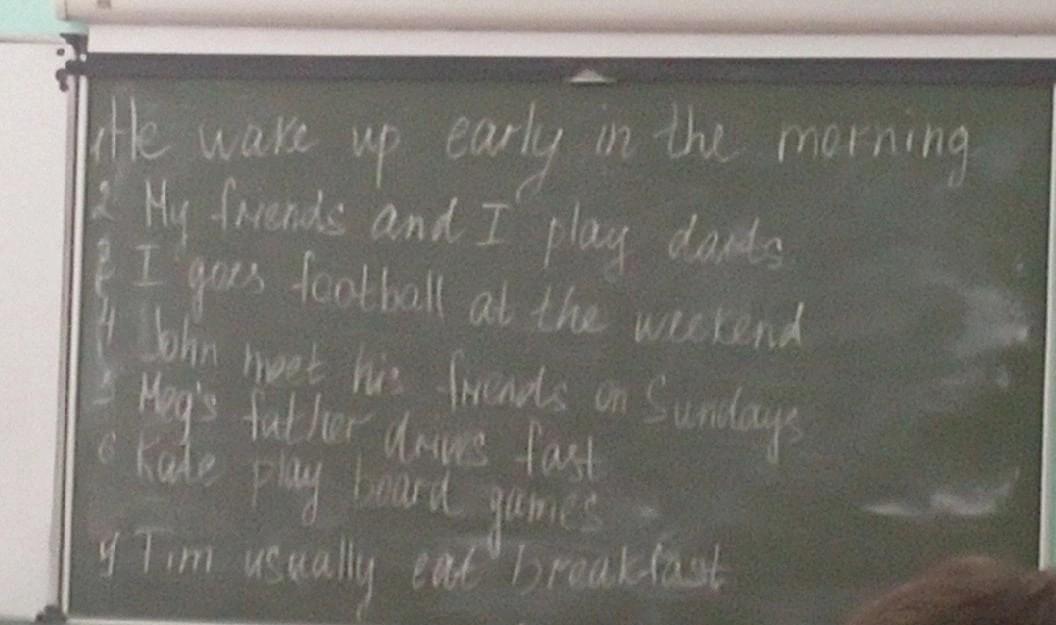 1 He wake up early in the morning
2 My friends and I play darts
3 I goes football at the weekend
4 John meet his friends on Sundays
5 Meg's father drives fast
6 Kate play board games
7 Tim usually eat breakfast